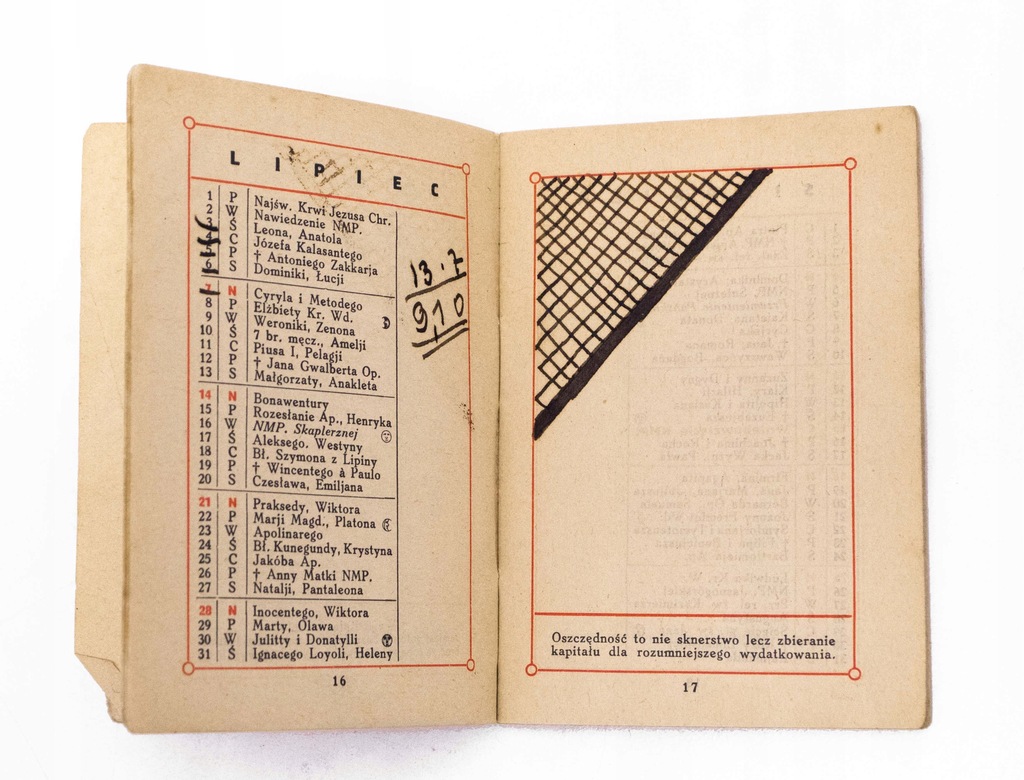 LIPIEC
1 P Najśw. Krwi Jezusa Chr.
2 W Nawiedzenie NMP.
3 Ś Leona, Anatola
4 C Józefa Kalasantego
5 P † Antoniego Zakkarja
6 S Dominiki, Łucji
7 N Cyryla i Metodego
8 P Elżbiety Kr. Wd.
9 W Weroniki, Zenona
10 Ś 7 br. męcz., Amelji
11 C Piusa I, Pelagji
12 P † Jana Gwalberta Op.
13 S Małgorzaty, Anakleta
14 N Bonawentury
15 P Rozesłanie Ap., Henryka
16 W NMP. Skaplerznej
17 Ś Aleksego. Westyny
18 C Bł. Szymona z Lipiny
19 P † Wincentego à Paulo
20 S Czesława, Emiljana
21 N Praksedy, Wiktora
22 P Marji Magd., Platona
23 W Apolinarego
24 Ś Bł. Kunegundy, Krystyna
25 C Jakóba Ap.
26 P † Anny Matki NMP.
27 S Natalji, Pantaleona
28 N Inocentego, Wiktora
29 P Marty, Olawa
30 W Julitty i Donatylli
31 Ś Ignacego Loyoli, Heleny
13.7
9,10
16
Oszczędność to nie sknerstwo lecz zbieranie
kapitału dla rozumniejszego wydatkowania.
17